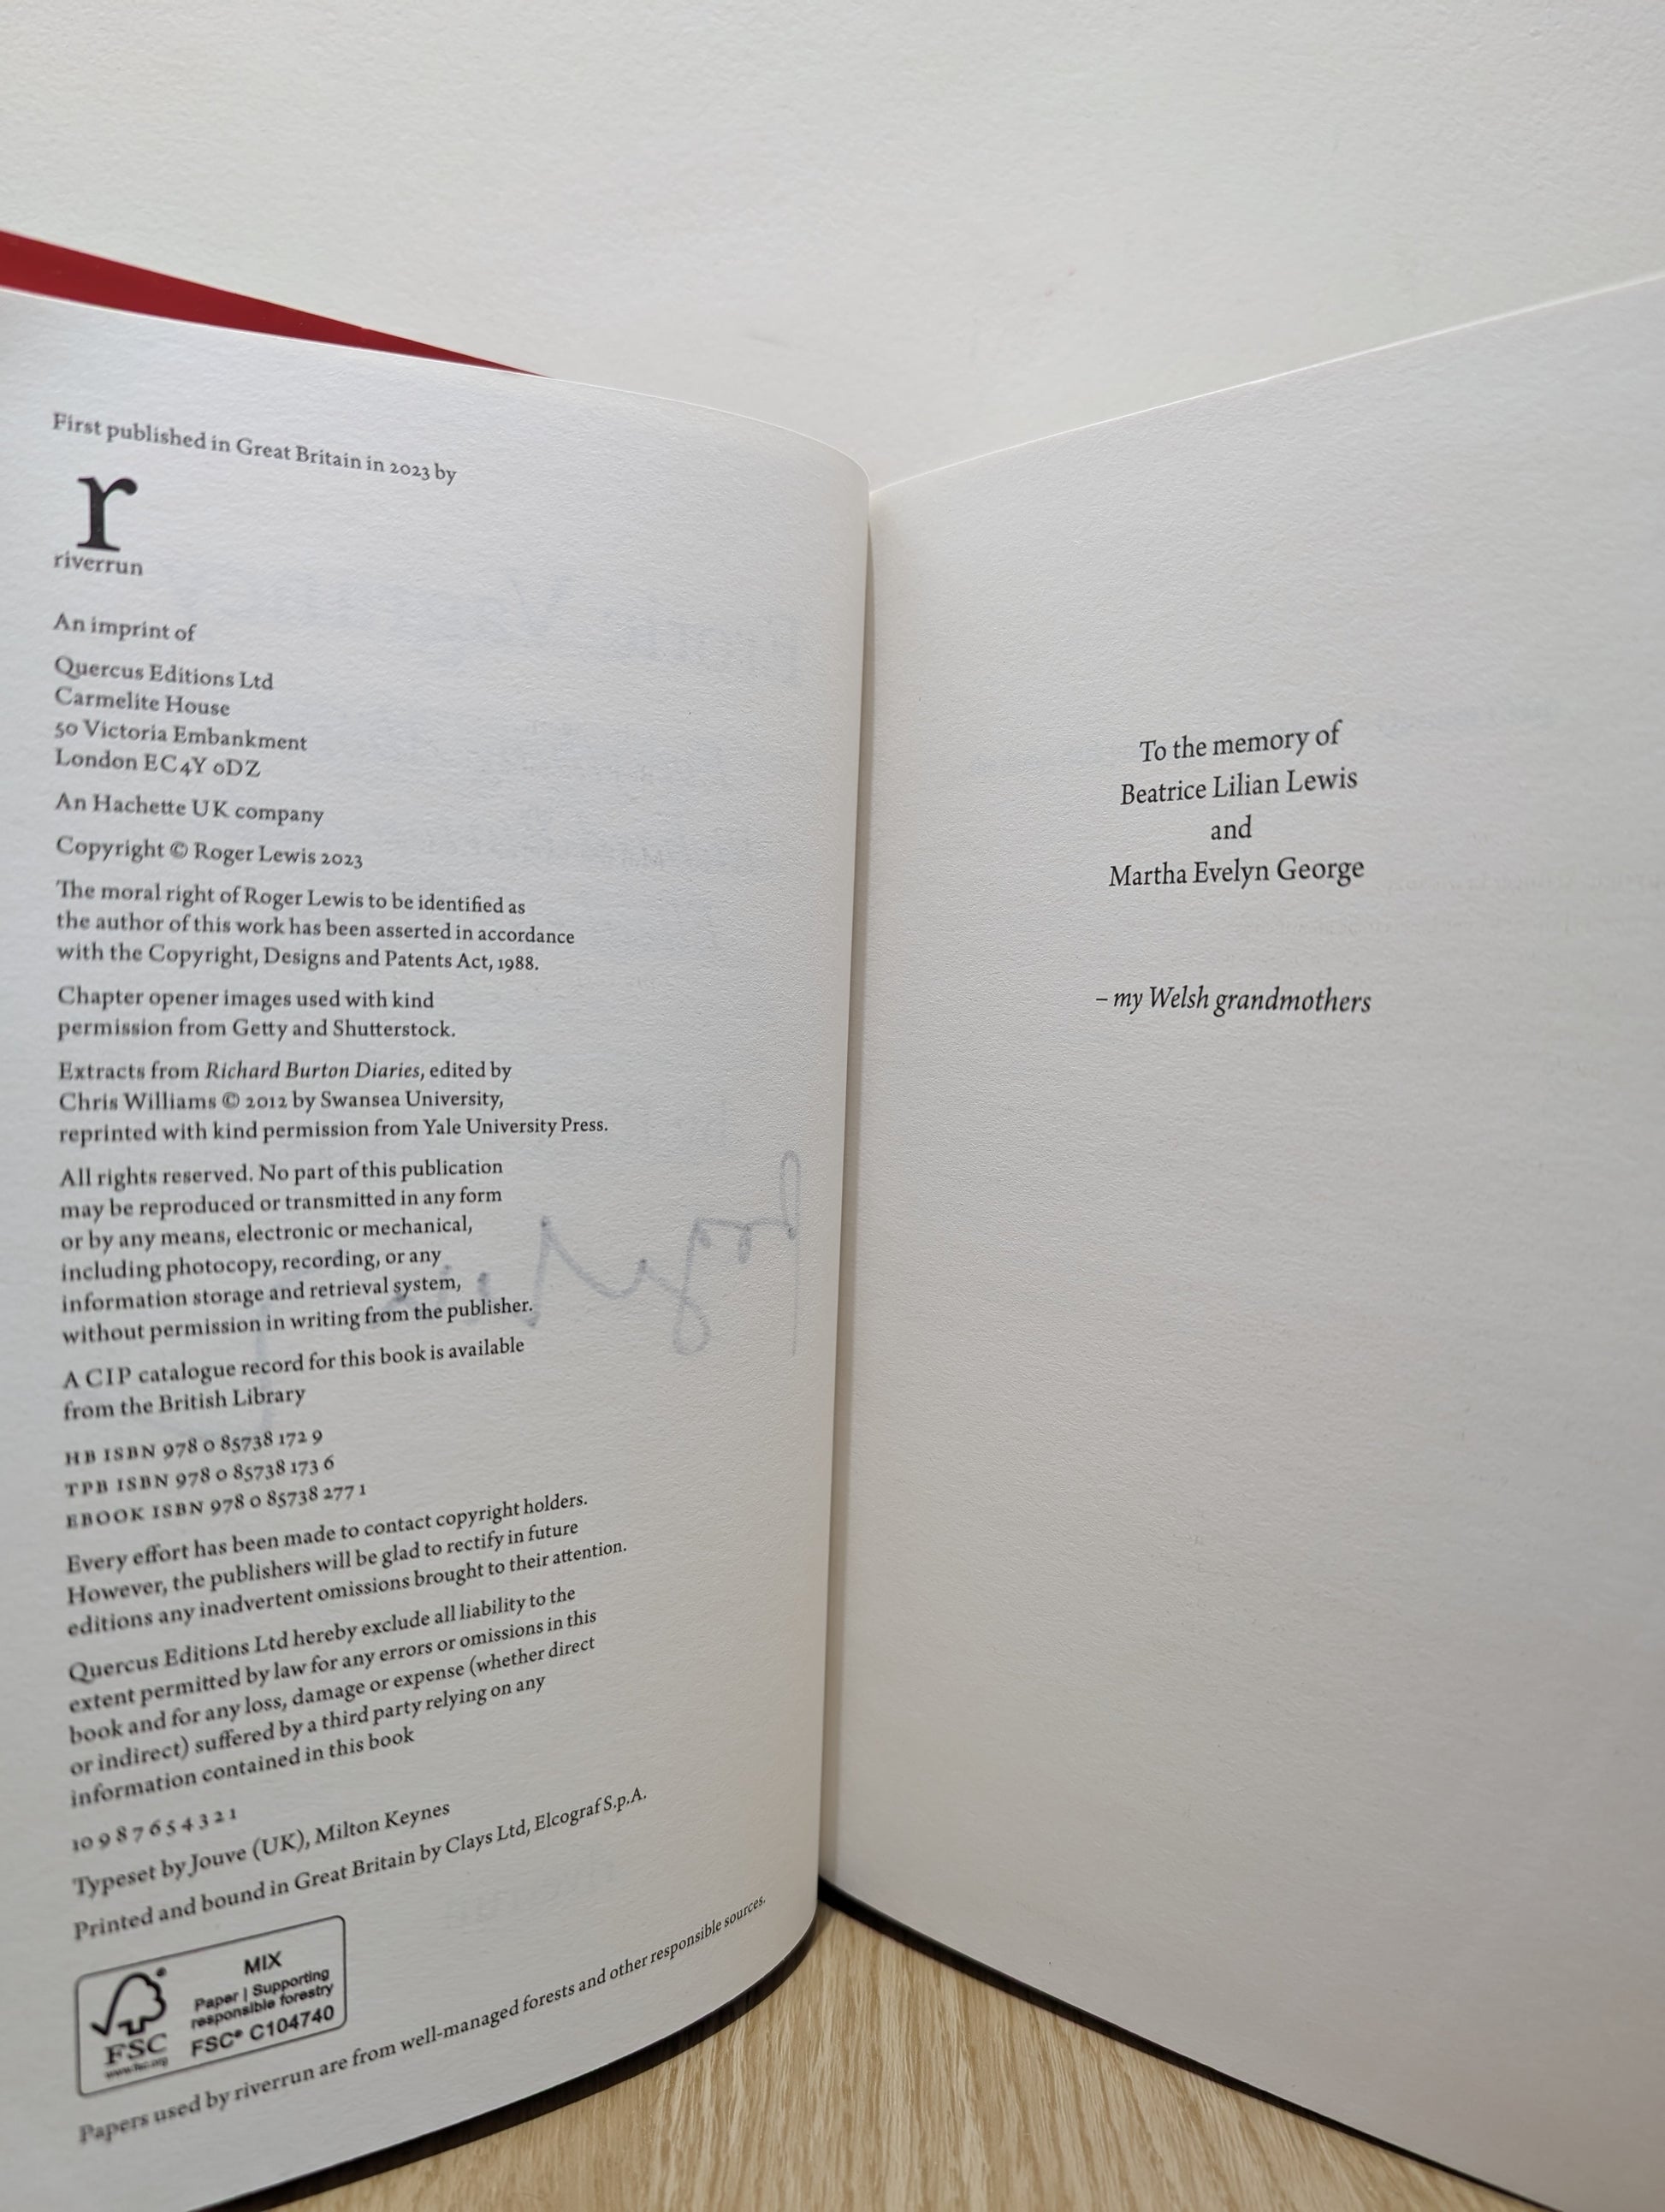 First published in Great Britain in 2023 by
r
riverrun
An imprint of
Quercus Editions Ltd
Carmelite House
50 Victoria Embankment
London EC4Y 0DZ
An Hachette UK company
Copyright © Roger Lewis 2023
The moral right of Roger Lewis to be identified as
the author of this work has been asserted in accordance
with the Copyright, Designs and Patents Act, 1988.
Chapter opener images used with kind
permission from Getty and Shutterstock.
Extracts from Richard Burton Diaries, edited by
Chris Williams © 2012 by Swansea University,
reprinted with kind permission from Yale University Press.
All rights reserved. No part of this publication
may be reproduced or transmitted in any form
or by any means, electronic or mechanical,
including photocopy, recording, or any
information storage and retrieval system,
without permission in writing from the publisher.
A CIP catalogue record for this book is available
from the British Library
HB ISBN 978 0 85738 172 9
TPB ISBN 978 0 85738 173 6
EBOOK ISBN 978 0 85738 277 1
Every effort has been made to contact copyright holders.
However, the publishers will be glad to rectify in future
editions any inadvertent omissions brought to their attention.
Quercus Editions Ltd hereby exclude all liability to the
extent permitted by law for any errors or omissions in this
book and for any loss, damage or expense (whether direct
or indirect) suffered by a third party relying on any
information contained in this book
10 9 8 7 6 5 4 3 2 1
Typeset by Jouve (UK), Milton Keynes
Printed and bound in Great Britain by Clays Ltd, Elcograf S.p.A.
MIX
Paper | Supporting
responsible forestry
FSC® C104740
FSC
www.fsc.org
Papers used by riverrun are from well-managed forests and other responsible sources.
To the memory of
Beatrice Lilian Lewis
and
Martha Evelyn George
– my Welsh grandmothers